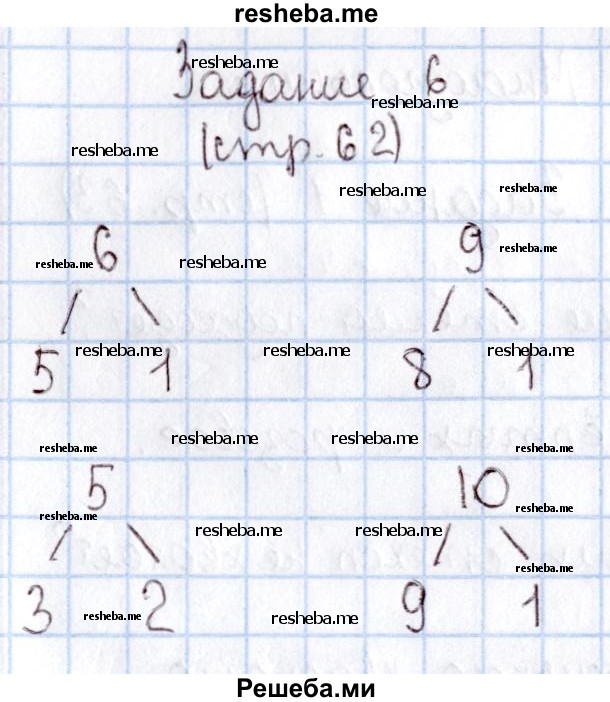 resheba.me
resheba.me
Задание 6
resheba.me
resheba.me
(стр. 62)
resheba.me
resheba.me
6 9
resheba.me
resheba.me
resheba.me
5 1 8 1
resheba.me
resheba.me
resheba.me
resheba.me
resheba.me
resheba.me
resheba.me
5 10
resheba.me
resheba.me
resheba.me
resheba.me
resheba.me
3 2 9 1
resheba.me
resheba.me
Решеба.ми